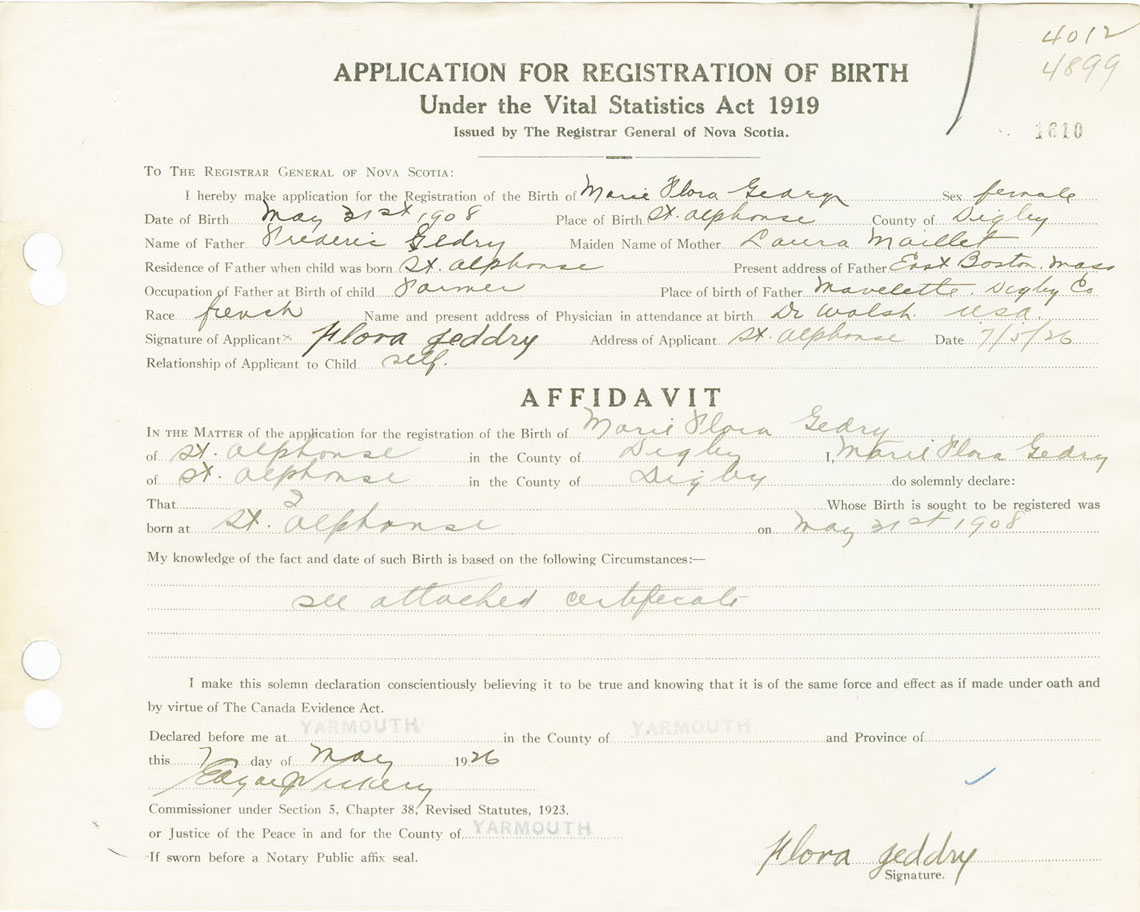 4012
4899
1610
APPLICATION FOR REGISTRATION OF BIRTH
Under the Vital Statistics Act 1919
Issued by The Registrar General of Nova Scotia.
TO THE REGISTRAR GENERAL OF NOVA SCOTIA:
I hereby make application for the Registration of the Birth of Marie Flora Gedry Sex female
Date of Birth May 31st 1908 Place of Birth St. Alphonse County of Digby
Name of Father Frederic Gedry Maiden Name of Mother Laura Maillet
Residence of Father when child was born St. Alphonse Present address of Father East Boston. Mass
Occupation of Father at Birth of child Farmer Place of birth of Father Mavelette. Digby Co
Race french Name and present address of Physician in attendance at birth Dr Walsh. USA.
Signature of Applicant x Flora geddry Address of Applicant St. Alphonse Date 7/5/26
Relationship of Applicant to Child self.
AFFIDAVIT
IN THE MATTER of the application for the registration of the Birth of Marie Flora Gedry
of St. Alphonse in the County of Digby I, Marie Flora Gedry
of St. Alphonse in the County of Digby do solemnly declare:
That I Whose Birth is sought to be registered was
born at St. Alphonse on May 31st 1908
My knowledge of the fact and date of such Birth is based on the following Circumstances:—
see attached certificate
I make this solemn declaration conscientiously believing it to be true and knowing that it is of the same force and effect as if made under oath and
by virtue of The Canada Evidence Act.
Declared before me at YARMOUTH in the County of YARMOUTH and Province of
this 7 day of May 1926
Commissioner under Section 5, Chapter 38, Revised Statutes, 1923.
or Justice of the Peace in and for the County of YARMOUTH
If sworn before a Notary Public affix seal.
Flora geddry
Signature.